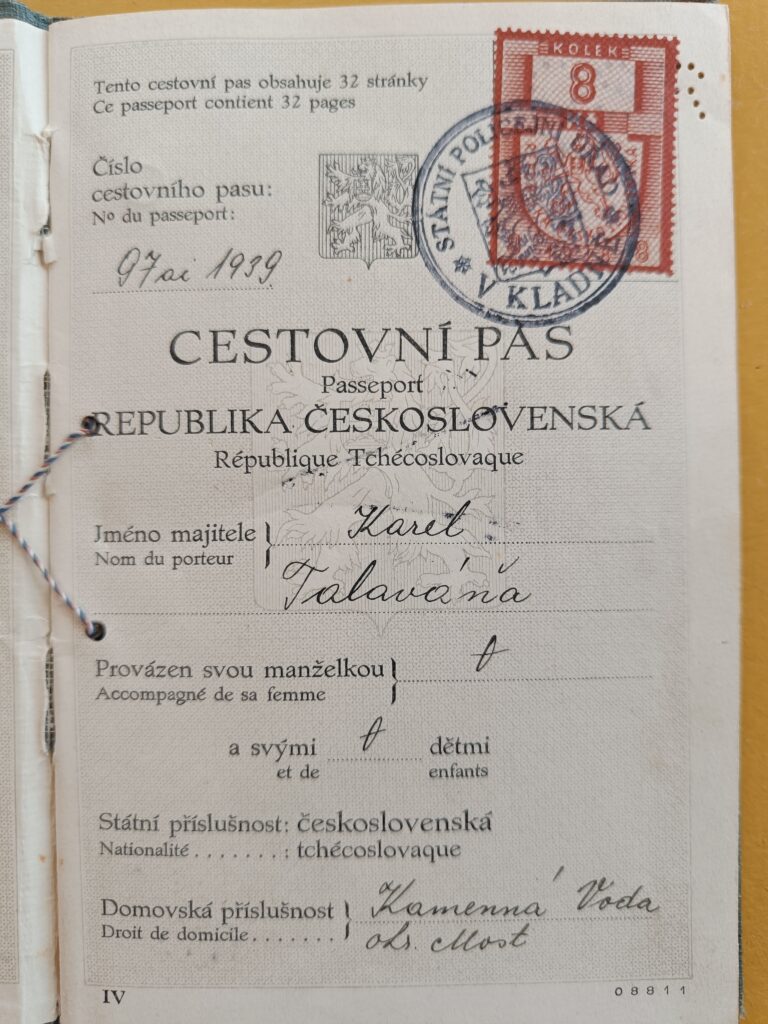 Tento cestovní pas obsahuje 32 stránky
Ce passeport contient 32 pages
KOLEK
8
8
STÁTNÍ POLICEJNÍ ÚŘAD
V KLADNĚ
Číslo
cestovního pasu:
Nº du passeport:
97ai 1939
CESTOVNÍ PAS
Passeport
REPUBLIKA ČESKOSLOVENSKÁ
République Tchécoslovaque
Jméno majitele Karel
Nom du porteur
Talaváňa
Provázen svou manželkou
Accompagné de sa femme
a svými dětmi
et de enfants
Státní příslušnost: československá
Nationalité . . . . . . . : tchécoslovaque
Domovská příslušnost Kamenná Voda
Droit de domicile....... okr. Most
IV 08811